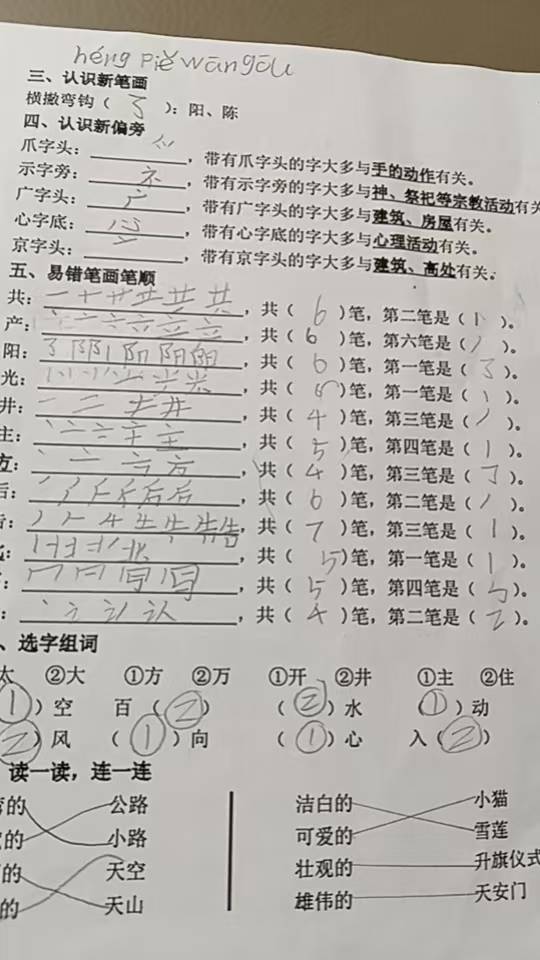 héng piě wān gōu
三、认识新笔画
横撇弯钩（㇌）：阳、陈
四、认识新偏旁
爪字头：爫，带有爪字头的字大多与手的动作有关。
示字旁：礻，带有示字旁的字大多与神、祭祀等宗教活动有关
广字头：广，带有广字头的字大多与建筑、房屋有关。
心字底：心，带有心字底的字大多与心理活动有关。
京字头：亠，带有京字头的字大多与建筑、高处有关。
五、易错笔画笔顺
共：一 十 廾 共 共，共（6）笔，第二笔是（丨）。
产：丶 亠，共（6）笔，第六笔是（丿）。
阳：㇌ 阝 阳 阳，共（6）笔，第一笔是（㇌）。
光：共（6）笔，第一笔是（丨）。
井：一 二 井，共（4）笔，第三笔是（丿）。
主：丶 亠 主，共（5）笔，第四笔是（丨）。
方：丶 亠 方，共（4）笔，第三笔是（㇆）。
后：丿 后 后，共（6）笔，第二笔是（丿）。
丿 𠂉 牛 告，共（7）笔，第三笔是（丨）。
丨 北，共（5）笔，第一笔是（丨）。
共（5）笔，第四笔是（㇉）。
丶 讠 认，共（4）笔，第二笔是（）。
、选字组词
太 ②大 ①方 ②万 ①开 ②井 ①主 ②住
①）空 百（②） （②）水 （①）动
②）风 （①）向 （①）心 入（②）
读一读，连一连
的 公路 洁白的 小猫
的 小路 可爱的 雪莲
的 天空 壮观的 升旗仪式
的 天山 雄伟的 天安门